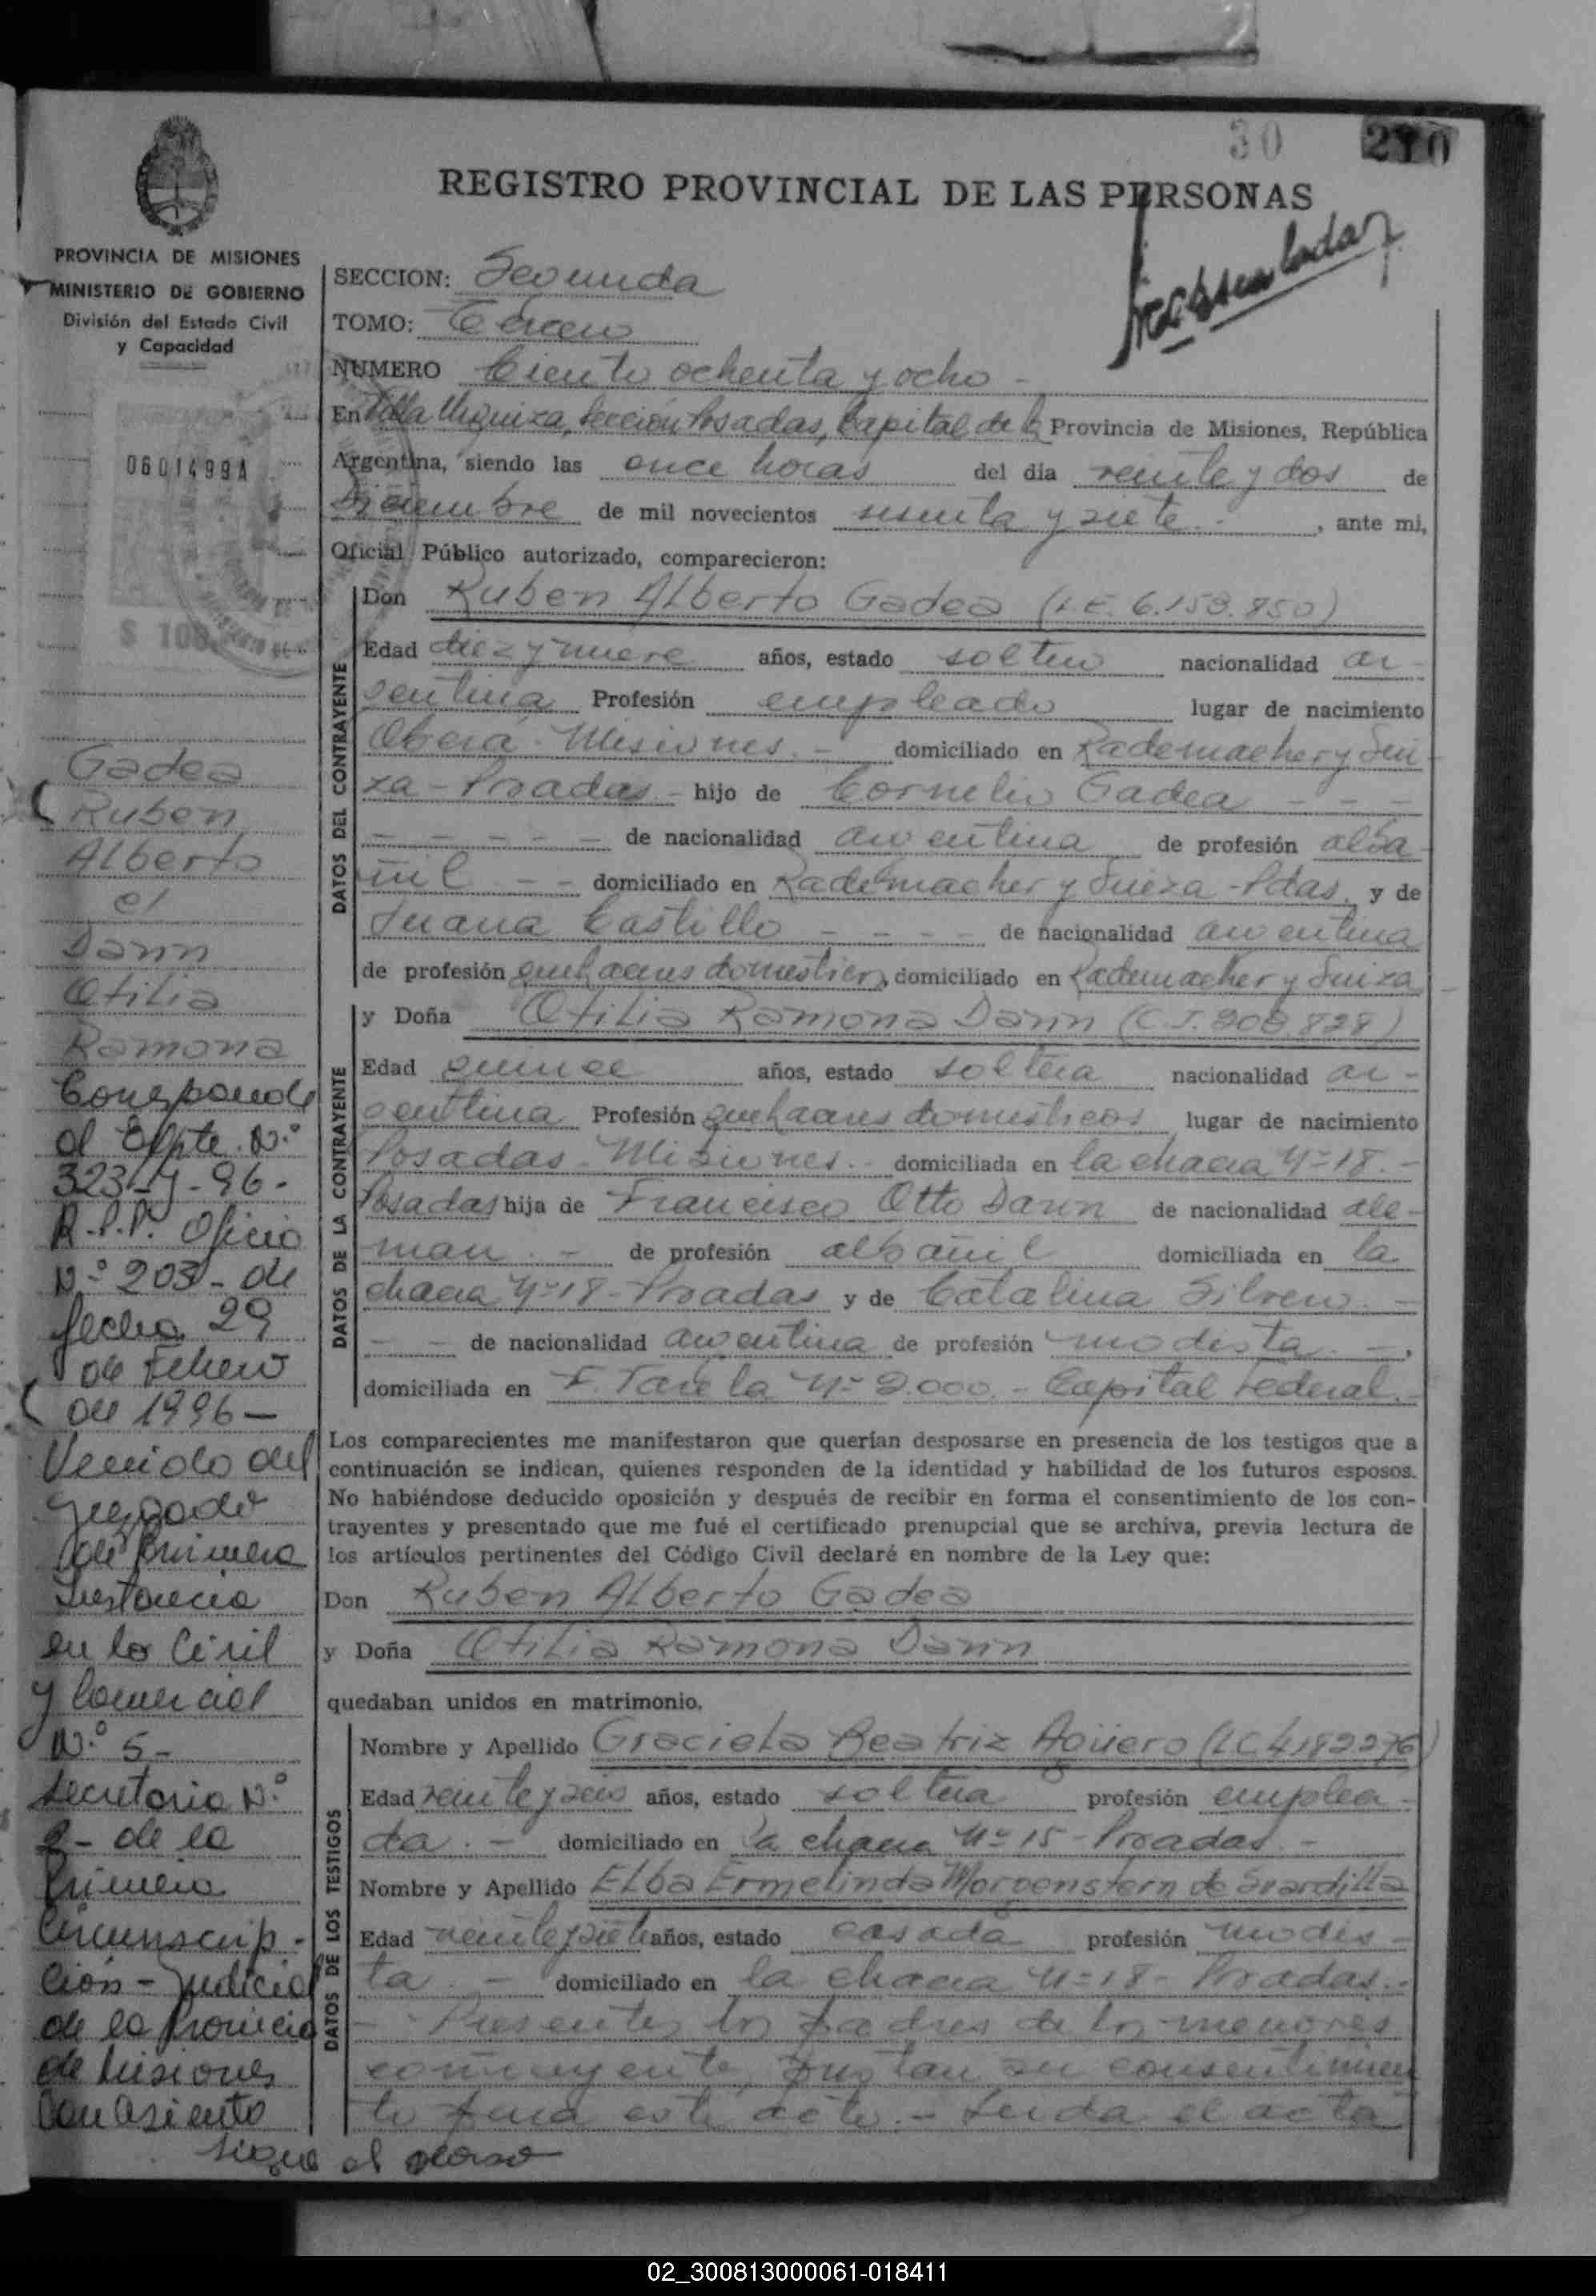 30 210
REGISTRO PROVINCIAL DE LAS PERSONAS
PROVINCIA DE MISIONES
MINISTERIO DE GOBIERNO
División del Estado Civil
y Capacidad
0601499A
$ 100
Gadea
Ruben
Alberto
c/
Dann
Otilia
Ramona
Corresponde
al Expte. N.º
323-J-96-
R.P.P. Oficio
N.º 203- de
fecha 29
de Febrero
de 1996-
Venido del
Juzgado
de Primera
Instancia
en lo Civil
y Comercial
N.º 5-
Secretaria N.º
2- de la
Primera
Circunscrip-
ción-Judicial
de la Provincia
de Misiones
Con asiento
sigue al dorso
SECCION: Segunda
TOMO: Tercero
NUMERO Ciento ochenta y ocho -
En Villa Urquiza, Sección Posadas, Capital de la Provincia de Misiones, República
Argentina, siendo las once horas del día veinte y dos de
Diciembre de mil novecientos sesenta y siete.- , ante mi,
Oficial Público autorizado, comparecieron:
DATOS DEL CONTRAYENTE
Don Ruben Alberto Gadea (L.E. 6.158.850)
Edad diez y nueve años, estado soltero nacionalidad ar-
gentina Profesión empleado lugar de nacimiento
Oberá-Misiones.- domiciliado en Rademacher y Sui-
za-Posadas.- hijo de Cornelio Gadea - - -
- - - - - - de nacionalidad argentina de profesión alba-
ñil - - domiciliado en Rademacher y Suiza-Pdas. y de
Juana Castillo - - - - de nacionalidad argentina
de profesión quehaceres domesticos, domiciliado en Rademacher y Suiza
DATOS DE LA CONTRAYENTE
y Doña Otilia Ramona Dann (C.I. 208 828)
Edad quince años, estado soltera nacionalidad ar-
gentina Profesión quehaceres domésticos lugar de nacimiento
Posadas-Misiones.- domiciliada en la chacra Nº 18.-
Posadas hija de Francisco Otto Dann de nacionalidad ale-
man.- de profesión albañil domiciliada en la
chacra Nº 18-Posadas y de Catalina Silvero.-
- - de nacionalidad argentina de profesión modista.-,
domiciliada en F. Varela Nº 2.000.- Capital Federal.-
Los comparecientes me manifestaron que querían desposarse en presencia de los testigos que a
continuación se indican, quienes responden de la identidad y habilidad de los futuros esposos.
No habiéndose deducido oposición y después de recibir en forma el consentimiento de los con-
trayentes y presentado que me fué el certificado prenupcial que se archiva, previa lectura de
los artículos pertinentes del Código Civil declaré en nombre de la Ley que:
Don Ruben Alberto Gadea
y Doña Otilia Ramona Dann
quedaban unidos en matrimonio.
DATOS DE LOS TESTIGOS
Nombre y Apellido Graciela Beatriz Agüero (LC 4182276)
Edad veinte y seis años, estado soltera profesión emplea-
da.- domiciliado en la chacra Nº 15-Posadas.-
Nombre y Apellido Elba Ermelinda Morgenstern de
Edad veinte y siete años, estado casada profesión modis-
ta.- domiciliado en la chacra Nº 18- Posadas.-
- Presentes los padres de los menores
contrayentes, prestan su consentimien
to para este acto.- Leida el acta
02_300813000061-018411